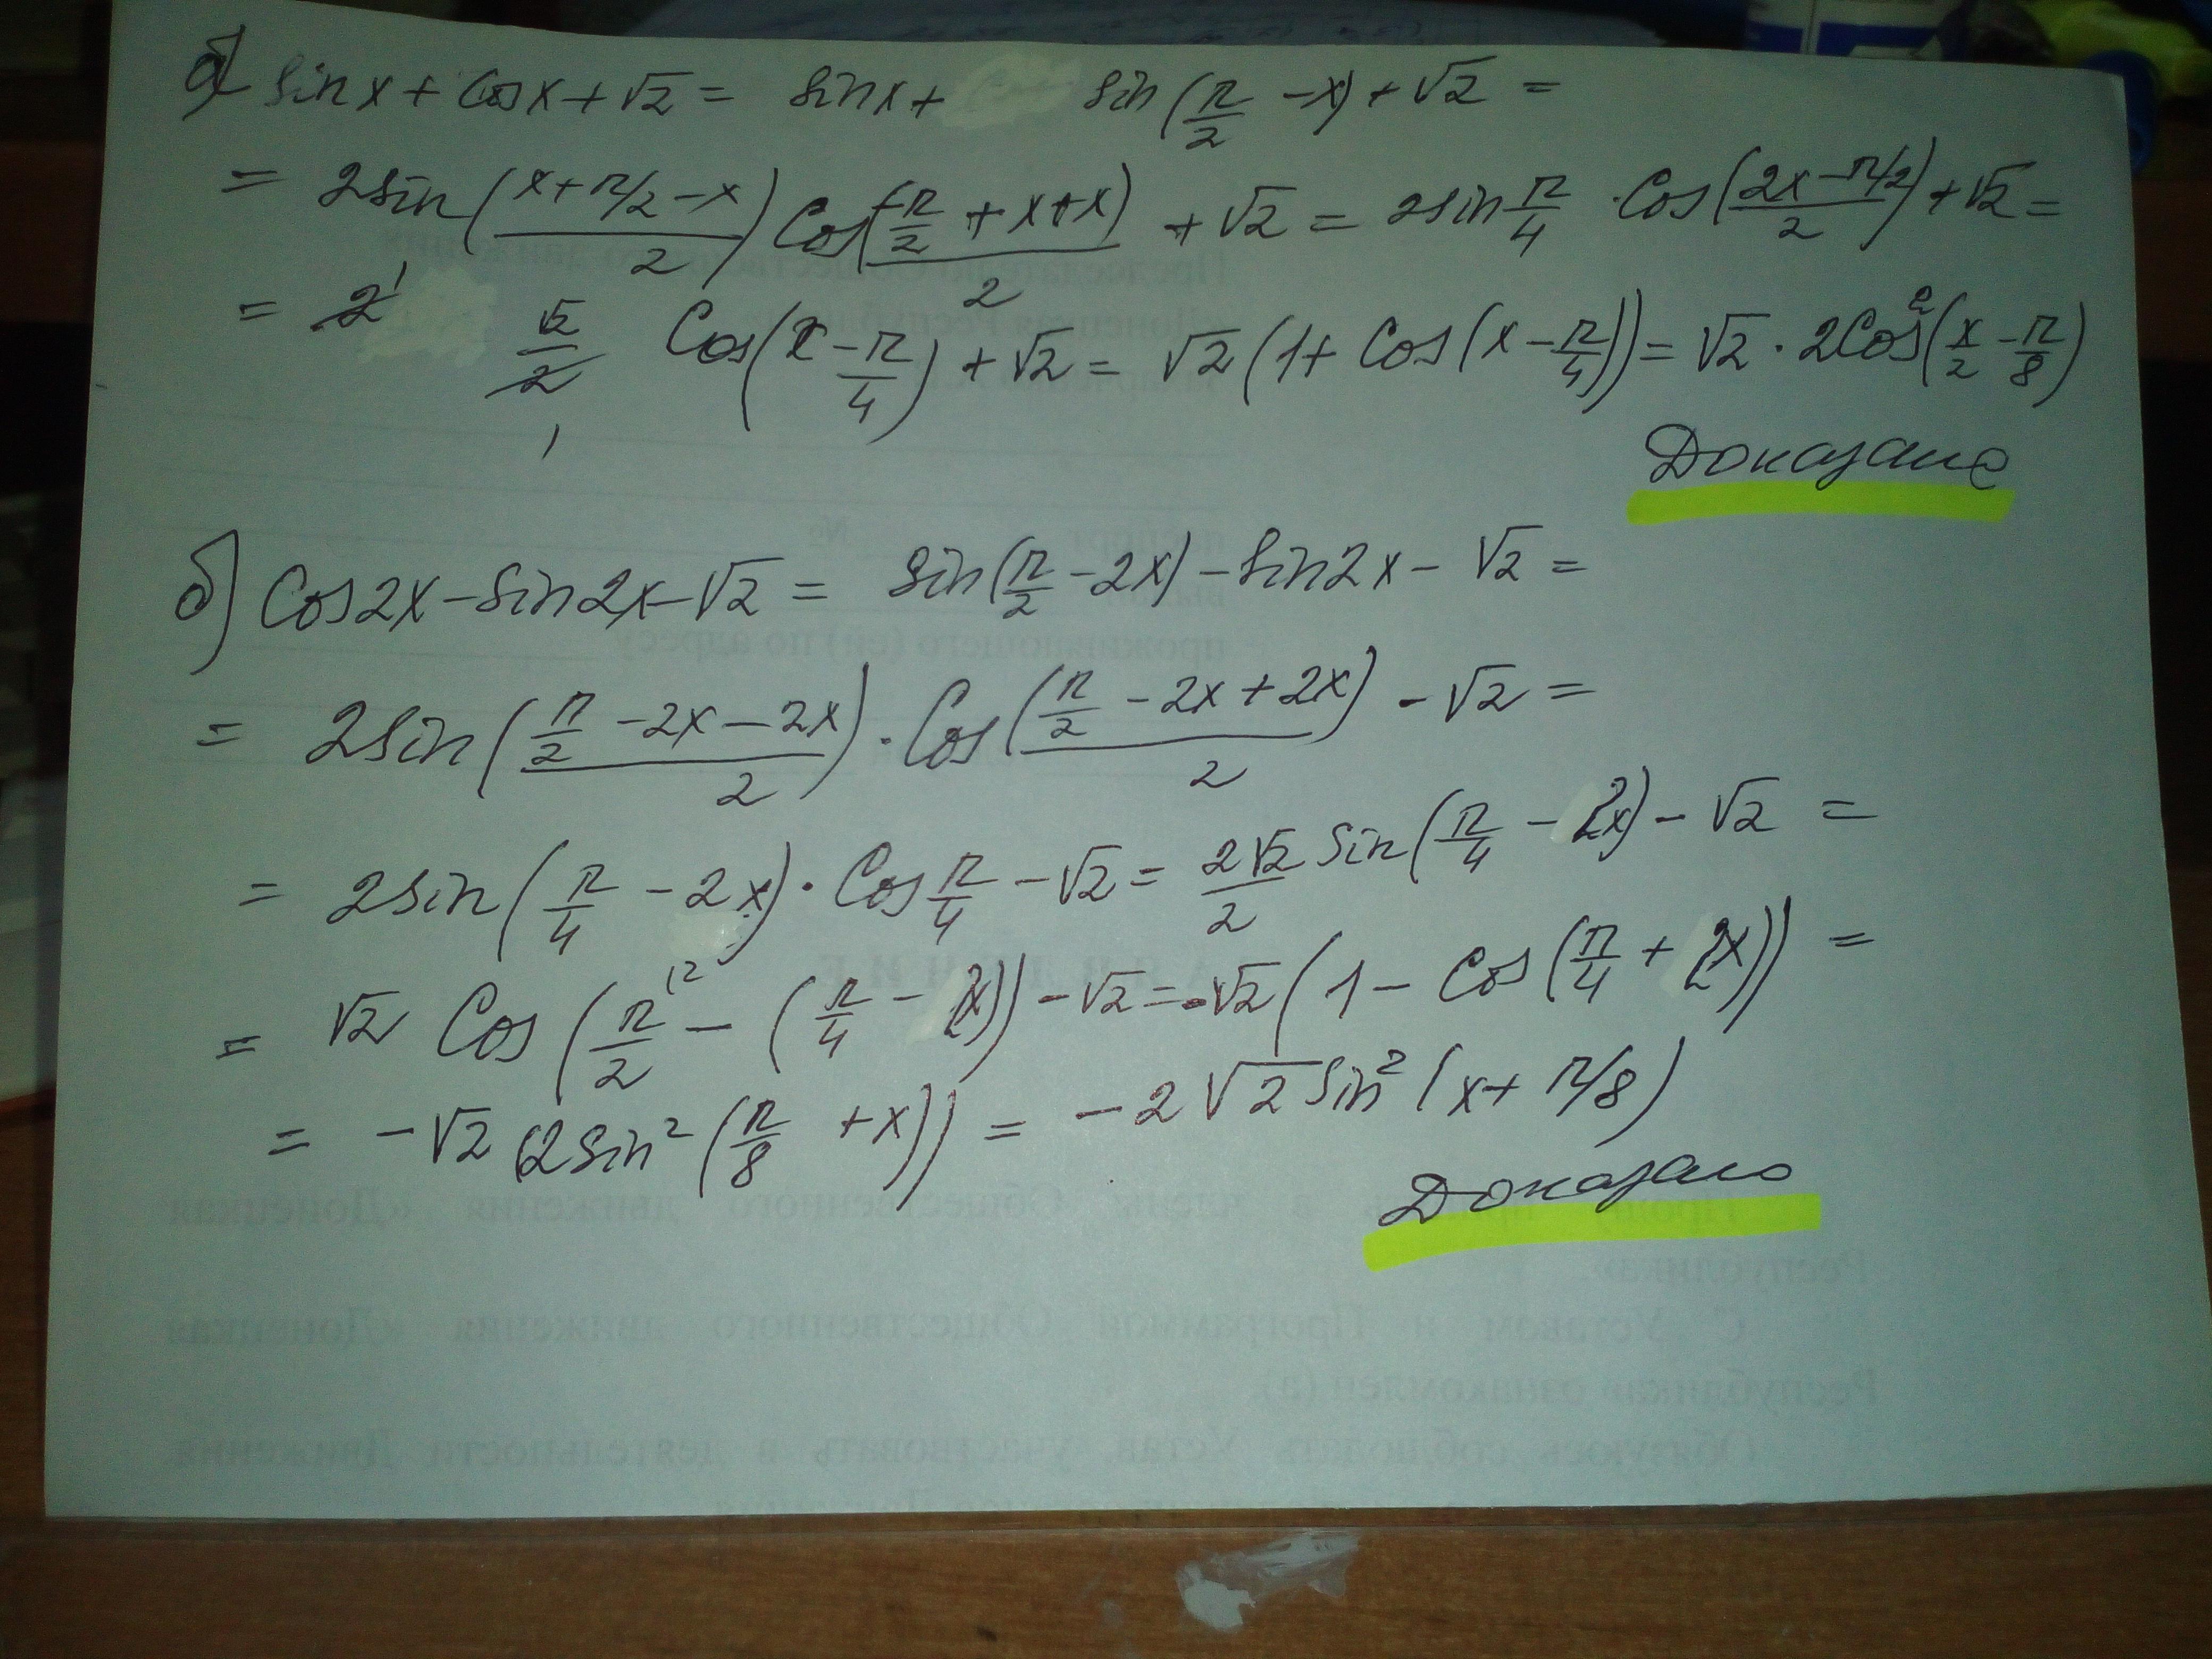 а) sin x + cos x + √2 = sin x + sin(π/2 - x) + √2 =
= 2sin((x + π/2 - x)/2) cos((-π/2 + x + x)/2) + √2 = 2sin π/4 · cos((2x - π/2)/2) + √2 =
= 2 √2/2 cos(x - π/4) + √2 = √2 (1 + cos(x - π/4)) = √2 · 2cos²(x/2 - π/8)
Доказано
б) cos2x - sin2x - √2 = sin(π/2 - 2x) - sin2x - √2 =
= 2sin((π/2 - 2x - 2x)/2) · cos((π/2 - 2x + 2x)/2) - √2 =
= 2sin(π/4 - 2x) · cos π/4 - √2 = 2√2/2 sin(π/4 - 2x) - √2 =
= √2 cos(π/2 - (π/4 - 2x)) - √2 = -√2 (1 - cos(π/4 + 2x)) =
= -√2 (2sin²(π/8 + x)) = -2√2 sin²(x + π/8)
Доказано